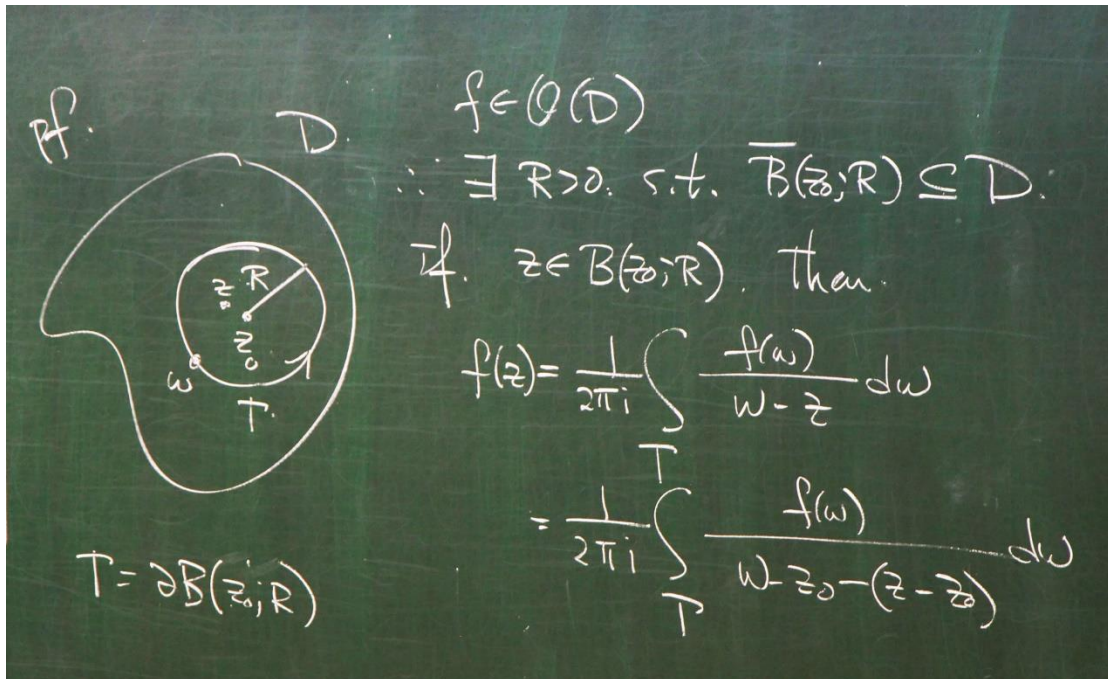 pf.
D.
z.
R
z₀
w
T.
T = ∂B(z₀;R)
f ∈ O(D)
∴ ∃ R>0. s.t. B̅(z₀;R) ⊆ D.
If. z ∈ B(z₀;R). then.
f(z) = 1/2πi ∫_T f(w)/w-z dw
= 1/2πi ∫_T f(w)/w-z₀-(z-z₀) dw